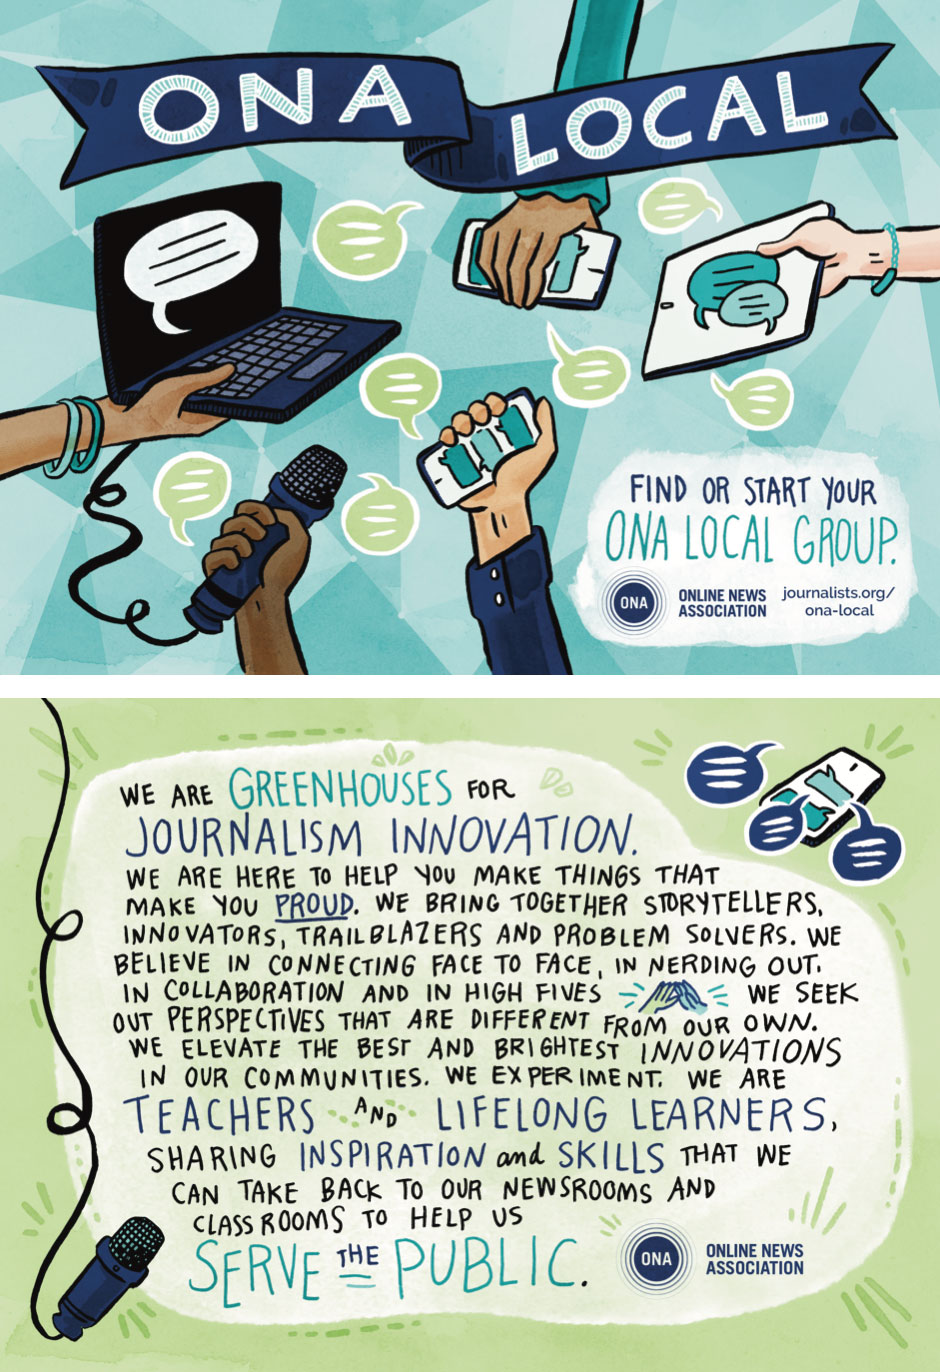 ONA LOCAL
FIND OR START YOUR
ONA LOCAL GROUP.
ONA
ONLINE NEWS
ASSOCIATION
journalists.org/
ona-local
WE ARE GREENHOUSES FOR
JOURNALISM INNOVATION.
WE ARE HERE TO HELP YOU MAKE THINGS THAT
MAKE YOU PROUD. WE BRING TOGETHER STORYTELLERS,
INNOVATORS, TRAILBLAZERS AND PROBLEM SOLVERS. WE
BELIEVE IN CONNECTING FACE TO FACE, IN NERDING OUT.
IN COLLABORATION AND IN HIGH FIVES WE SEEK
OUT PERSPECTIVES THAT ARE DIFFERENT FROM OUR OWN.
WE ELEVATE THE BEST AND BRIGHTEST INNOVATIONS
IN OUR COMMUNITIES. WE EXPERIMENT. WE ARE
TEACHERS AND LIFELONG LEARNERS,
SHARING INSPIRATION and SKILLS THAT WE
CAN TAKE BACK TO OUR NEWSROOMS AND
CLASSROOMS TO HELP US
SERVE THE PUBLIC.
ONA
ONLINE NEWS
ASSOCIATION